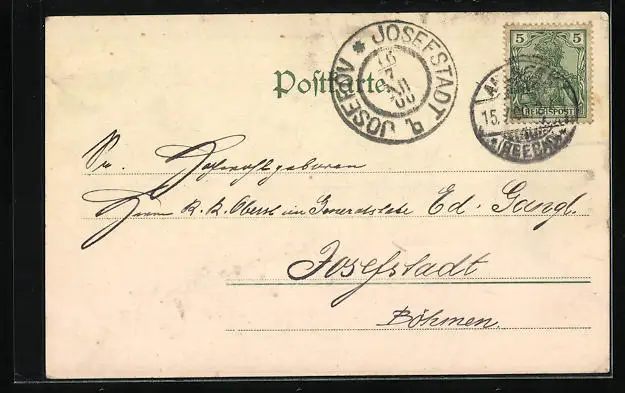 Postkarte
JOSEFSTADT
JOSEFOV
16
7
00
5 5
REICHSPOST
15.7
Sr. Hochwohlgeboren
Herrn k. k. Oberst im Generalstabe Ed. Gangl.
Josefstadt
Böhmen.